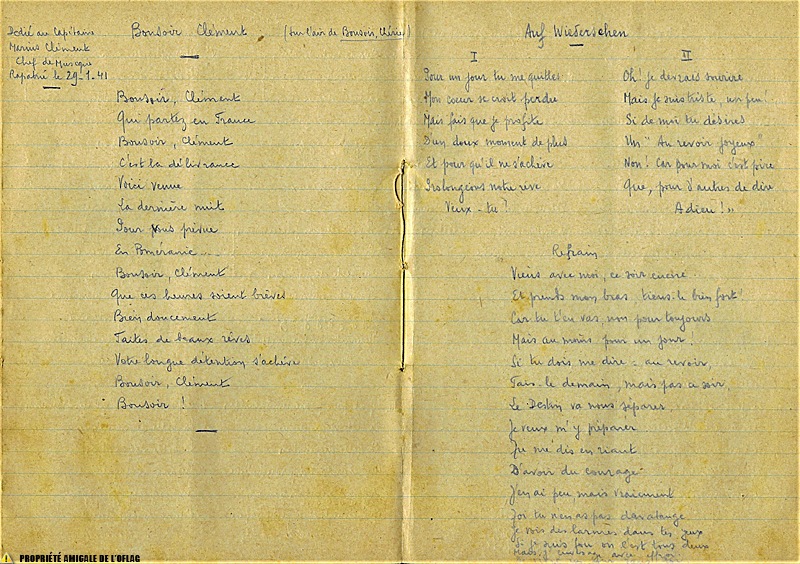 Dédié au Capitaine
Marius Clément
Chef de Musique
Rapatrié le 29-1-41
Bonsoir Clément (sur l'air de Bonsoir, Chérie)
Bonsoir, Clément
Qui partez en France
Bonsoir, Clément
C'est la délivrance
Voici venue
La dernière nuit
Pour vous prévue
En Poméranie...
Bonsoir, Clément
Que ces heures soient brèves
Bien doucement
Faites de beaux rêves
Votre longue détention s'achève
Bonsoir, Clément
Bonsoir !
Auf Wiederschen
I
Pour un jour tu me quittes
Mon coeur se croit perdre
Mais fais que je profite
D'un doux moment de plus
Et pour qu'il ne s'achève
Prolongeons notre rêve
Veux-tu ?
II
Oh! je devrais sourire
Mais je suis triste, un peu!
Si de moi tu désires
Un "Au revoir joyeux"
Non! Car pour moi c'est pire
Que, pour d'autres de dire
Adieu!"
Refrain
Viens avec moi, ce soir encore
Et prends mon bras tiens-le bien fort!
Car tu t'en vas, non pour toujours
Mais au moins pour un jour!
Si tu dois me dire = au revoir,
Fais-le demain, mais pas ce soir,
Le Destin va nous séparer
Je veux m'y préparer
Tu me dis en riant
D'avoir du courage
J'en ai peu, mais vraiment
tu n'en as pas davantage
Je vois des larmes dans tes yeux
Si je suis fou on l'est tous deux
Mais j'envisage avec
PROPRIÉTÉ AMIGALE DE L'OFLAG